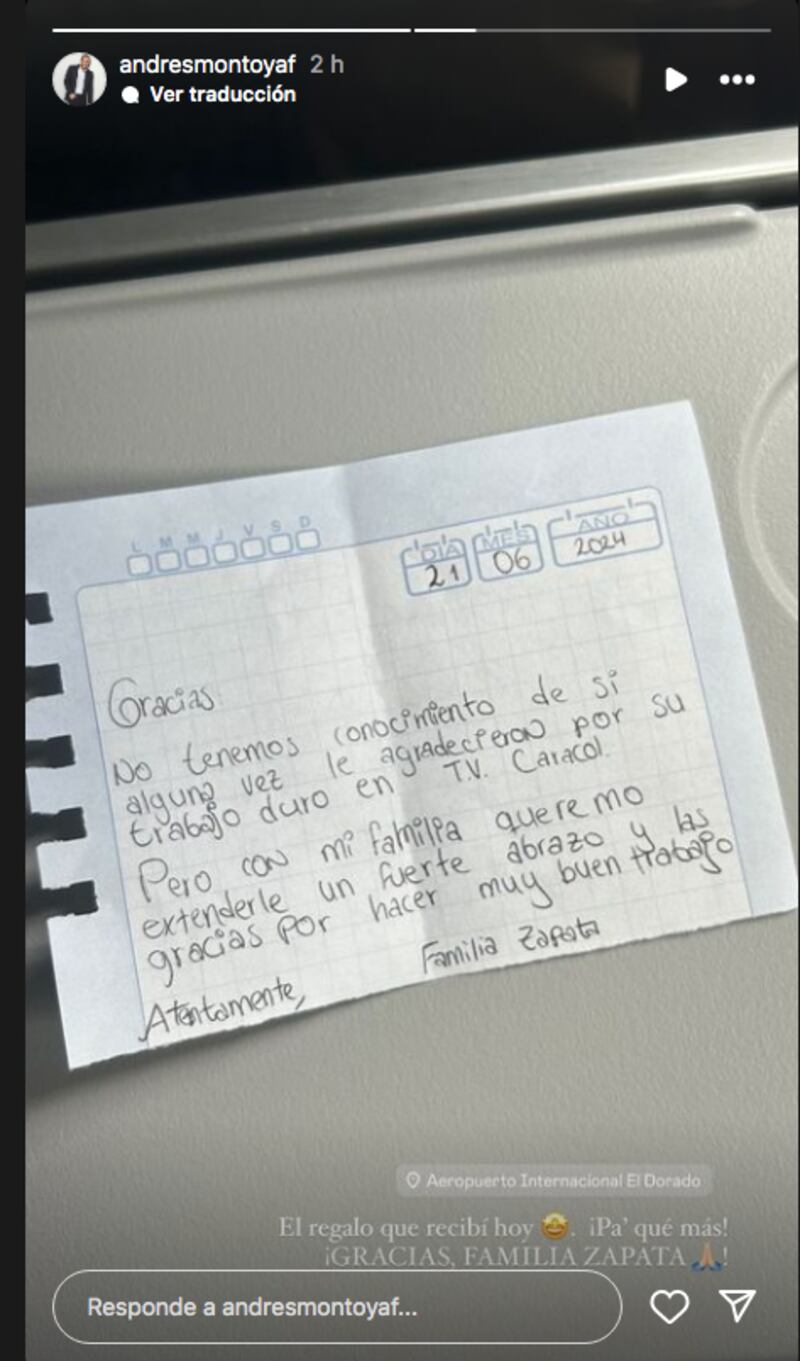 andresmontoyaf 2 h
Ver traducción
L M M J V S D
DÍA MES AÑO
21 06 2024
Gracias
No tenemos conocimiento de si
alguna vez le agradecieron por su
trabajo duro en T.V. Caracol.
Pero con mi familia queremo
extenderle un fuerte abrazo y las
gracias por hacer muy buen trabajo
Atentamente, Familia Zapata
Aeropuerto Internacional El Dorado
El regalo que recibí hoy 🤩. ¡Pa' qué más!
¡GRACIAS, FAMILIA ZAPATA 🙏🏼!
Responde a andresmontoyaf...